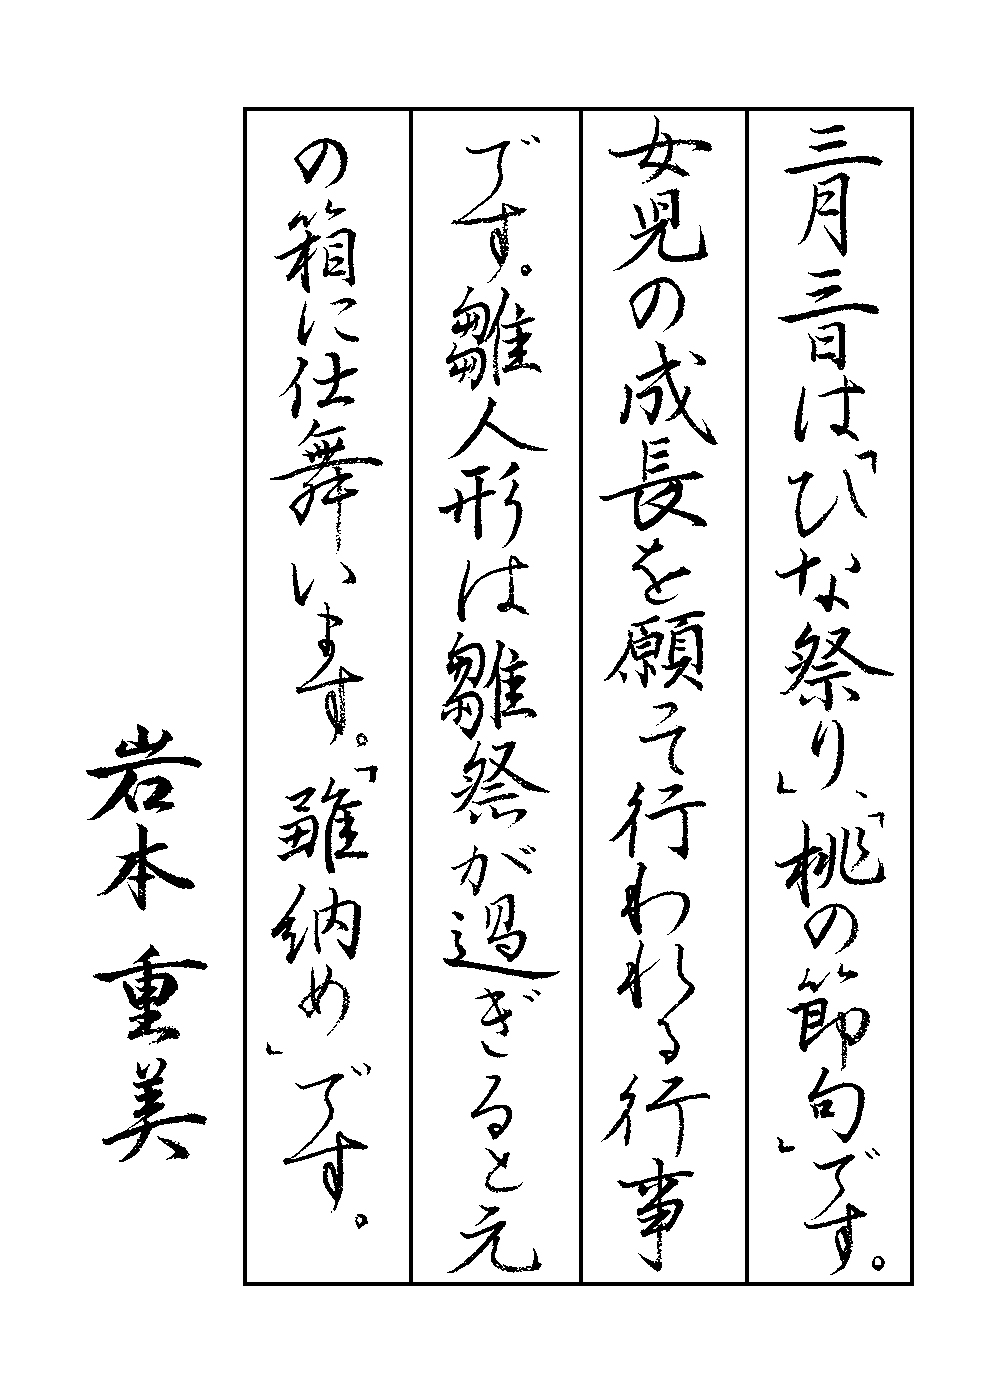 三月三日は「ひな祭り」、「桃の節句」です。
女児の成長を願って行われる行事
です。雛人形は雛祭が過ぎると元
の箱に仕舞います。「雛納め」です。
岩本重美